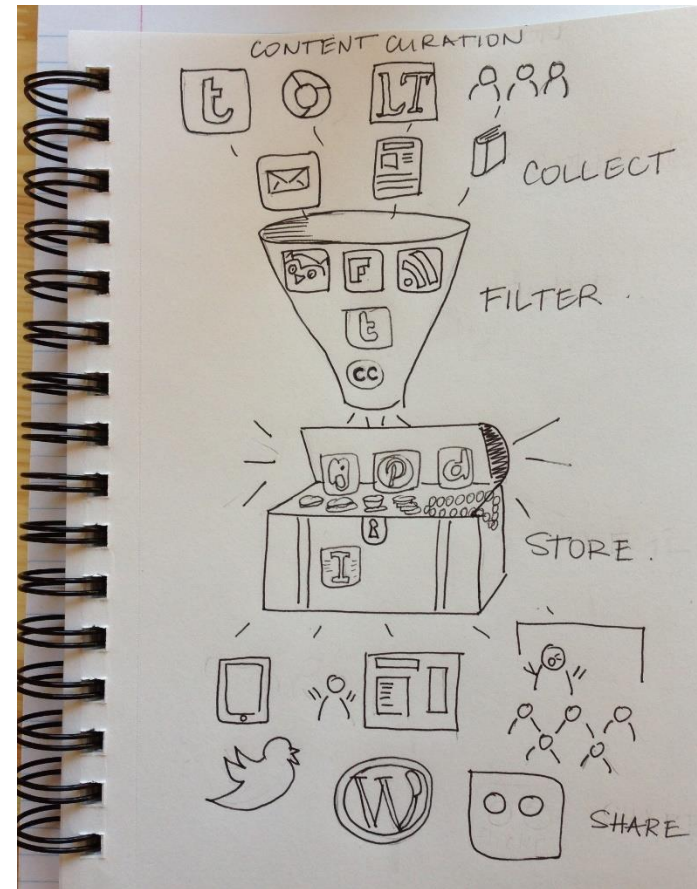 CONTENT CURATION
t
LT
COLLECT
F
FILTER .
t
cc
P
d
STORE .
I
W
SHARE